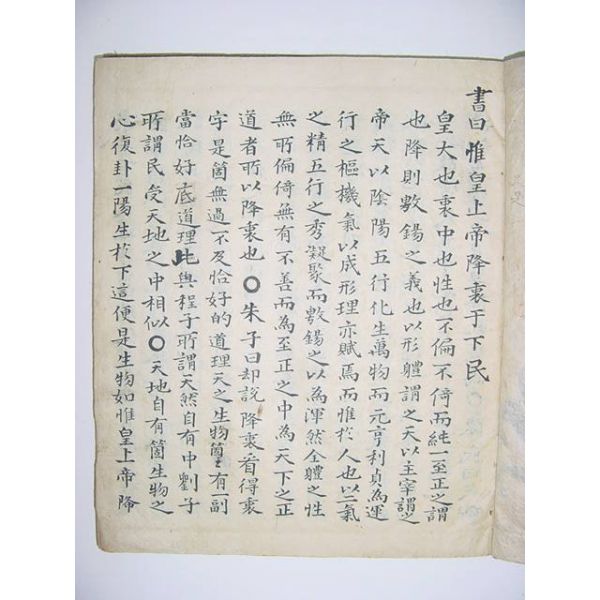 書曰惟皇上帝降衷于下民
皇大也衷中也性也不偏不倚而純一至正之謂
也降則敷錫之義也以形軆謂之天以主宰謂之
帝天以陰陽五行化生萬物而元亨利貞為運
行之樞機氣以成形理亦賦焉而惟扵人也以二氣
之精五行之秀凝聚而敷錫之以為渾然全軆之性
無所偏倚無有不善而為至正之中為天下之正
道者所以降衷也〇朱子曰却說降衷看得衷
字是箇無過不及恰好的道理天之生物箇〻有一副
當恰好底道理此與程子所謂天然自有中劉子
所謂民受天地之中相似〇天地自有箇生物之
心復卦一陽生扵下這便是生物如惟皇上帝降